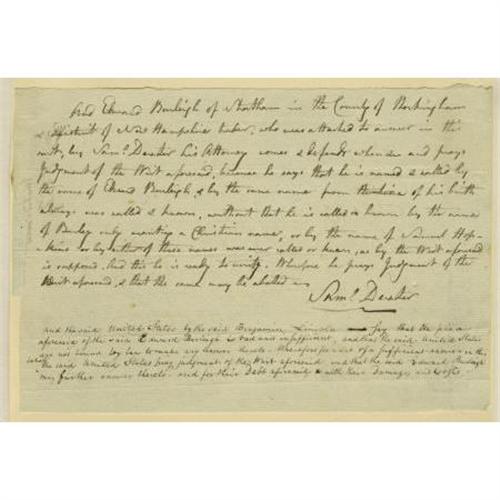 And Edward Burleigh of Stratham in the County of Rockingham
& District of New Hampshire, who was attached to answer in this
suit, by Saml. Dexter his Attorney comes & defends when &c and prays
Judgment of the Writ aforesaid, because he says that he is named & called by
the name of Edward Burleigh, & by the same name from the time of his birth
always was called & known, without that he is called or known by the name
of Burley only wanting a Christian name, or by the name of Samuel Hop-
kins or by either of these names was ever called or known, as by the Writ aforesaid
is supposed. And this he is ready to verify. Wherefore he prays Judgment of the
Writ aforesaid, & that the same may be abated &c
Saml. Dexter
and the said United States by the said Benjamin Lincoln say that the plea
aforesaid of the said Edward Burleigh is bad and insufficient, and that the said United States
are not bound by law to make any answer thereto. Wherefore for want of a sufficient answer in this
the said United States pray judgment of the Writ aforesaid and that the said Edward Burleigh
may further answer thereto. and for their Debt aforesaid with their Damages and Costs